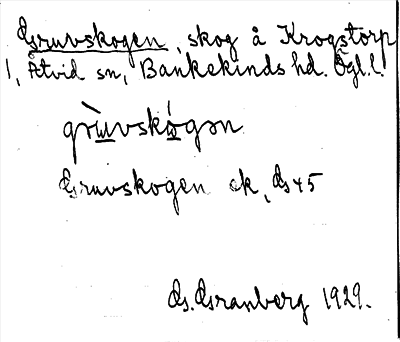 Gruvskogen, skog å Krogstorp
1, Åtvid sn, Bankekinds hd. Ögl. l.
Gruvskogen ek, G 45
G. Granberg 1929.